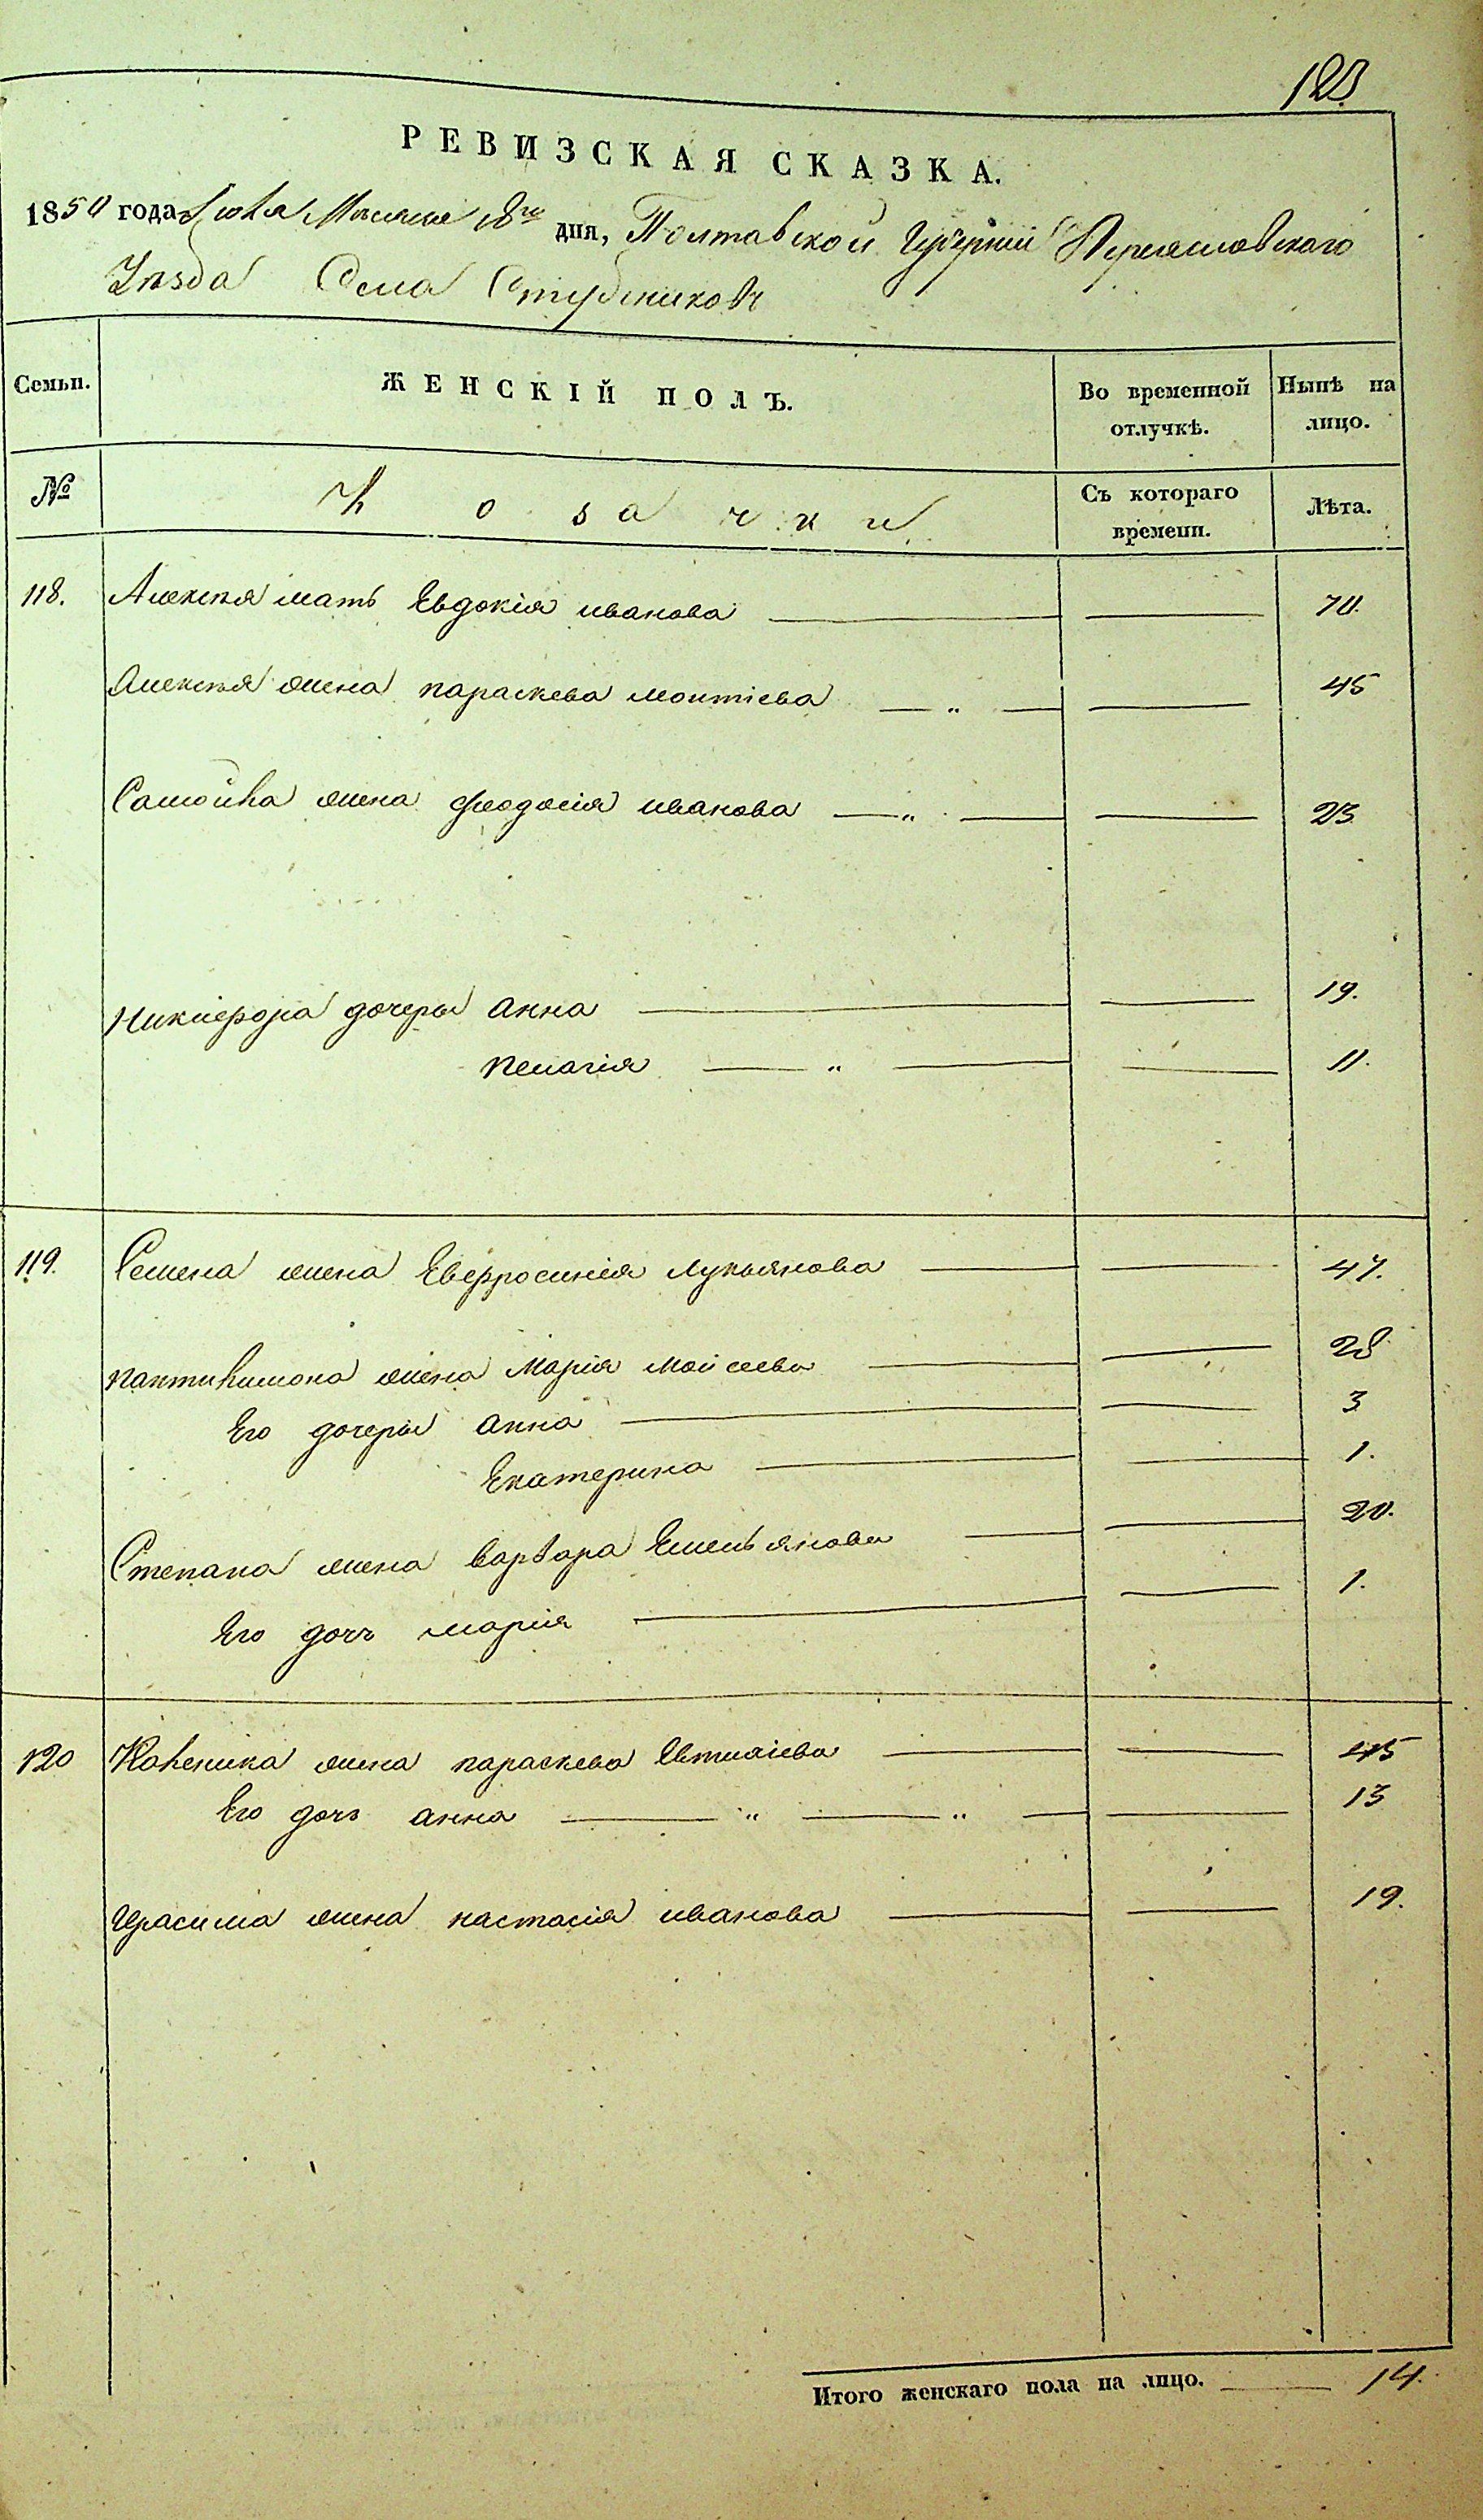 123
РЕВИЗСКАЯ СКАЗКА.
1850 года Июля Месяца 18го дня, Полтавской Губерніи Переяславскаго
Уѣзда Села Стубенниковъ
Семьи. ЖЕНСКІЙ ПОЛЪ. Во временной отлучкѣ. Нынѣ на лицо.
№ Козачки Съ котораго времени. Лѣта.
118. Алексѣя мать Евдокія иванова 70.
Алексѣя жена параскева 45
Самойла жена феодосія иванова 23
Никифора дочеры анна 19.
пелагія 11.
119. Семена жена Евфросинія лукьянова 47.
пантилимона жена Марія Моисеева 28
Его дочеры анна 3
Екатерина 1.
Степана жена варвара Емельянова 20.
Его дочь марія 1.
120 жена параскева Евтихіева 45
Его дочь анна 13
герасима жена настасія иванова 19.
Итого женскаго пола на лицо. 14.